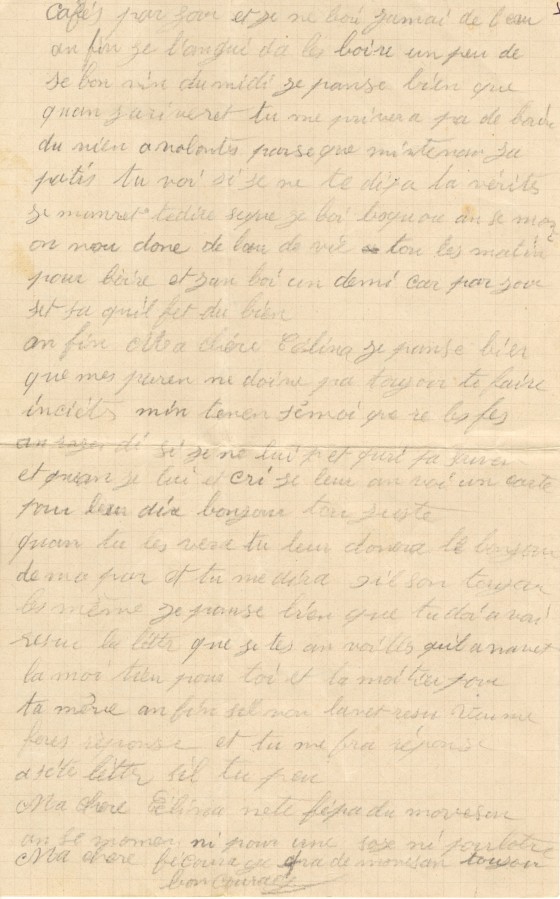 cafés par jour et je ne boi jamai de leau
an fin je langui da les boire un peu de
se bon vin du midi je panse bien que
quan jariveret tu me privera pa de boire
du vien a volontés parseque mintenan ja
patis tu voi si je ne te di pa la vérités
je manret te dire se que je boi boquou an se mon
on nou done de leau de vie tou les matin
pour boire et jan boi un demi car par jour
set sa quil fet du bien
an fin Ma chére Célina je panse bien
que mes paren ne doive pa toujour te faire
inciéts min tenen sémoi que re les fes
di si je ne lui é et quri pa souven
et quan je lui et cri je leur an voi un carte
pour leur dix bonjour tou juste
quan tu les vera tu leur donera le bonjour
de ma par et tu me dira sil son toujour
les méme je panse bien que tu doi a voi
resue la lettr que je tes an voillés quil a navet
la moi tien pour toi et la moitier pour
ta mére an fin sil non lavet resu
feres réponse et tu me fra réponse
a séte létter sil tu peu
Ma chere Célina ne te fé pa du movesan
an se momen ni pour une soze ni pour lotre
Ma chere fé courage fra de movesan toujour
bon courage